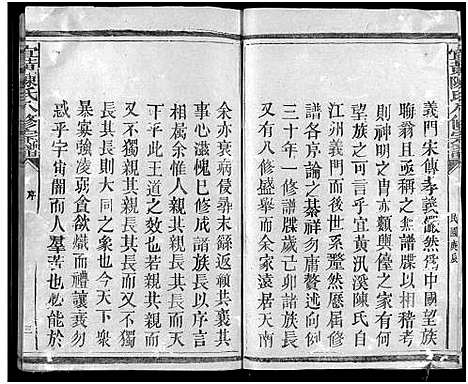 宜黃陳氏八修宗譜
民國庚辰
義門宋傳孝義儼然爲中國望族
聯翁且亟稱之無譜牒以相稽考
則神明之肖亦顯輿儓之家有何
望族之可言乎宜黃汎溪陳氏自
江州義門而後世系釐然歷屆修
三十年一修譜牒歲今諸族長
譜各序論之綦祥勿庸贅敘
又有八修盛舉而余家遠居天南
余亦衰病侵尋末繇返鄉共襄其
事心滋愧已修成諸族長以序言
相屬余惟人親其親長其長而天
下平此王道之大也不獨親其親而
又不獨親其親長其長而
長其長則大同之象也今天下衆
暴寡強凌弱貪欲熾而禮讓衰勿
惑乎宇宙闇而人羣苦也能於
宜黃陳氏八修宗譜
序
三